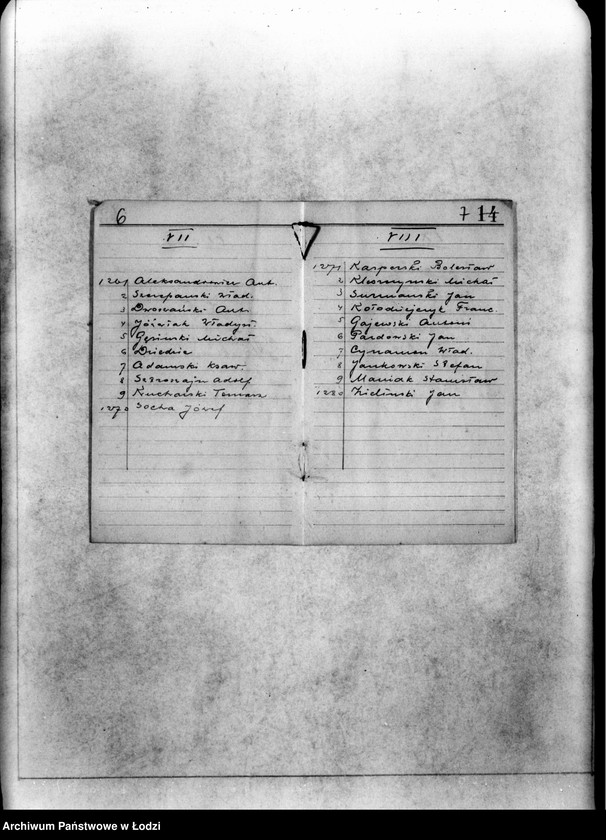 6
VII
1261 Aleksandrowicz Ant.
2 Szczepański Wład.
3 Drozdański Ant.
4 Jóźwiak Władysł.
5 Gęsinski Michał
6 Dziedzic
7 Adamski Ksaw.
8 Adolf
9 Kucharski Tomasz
1270 Socha Józef
7 14
VIII
1271 Kasperski Bolesław
2 Michał
3 Surmański Jan
4 Kołodziejczyk Franc.
5 Gajewski Antoni
6 Pardowski Jan
7 Cynamon Wład.
8 Jankowski Stefan
9 Maniak Stanisław
1280 Zieliński Jan
Archiwum Państwowe w Łodzi